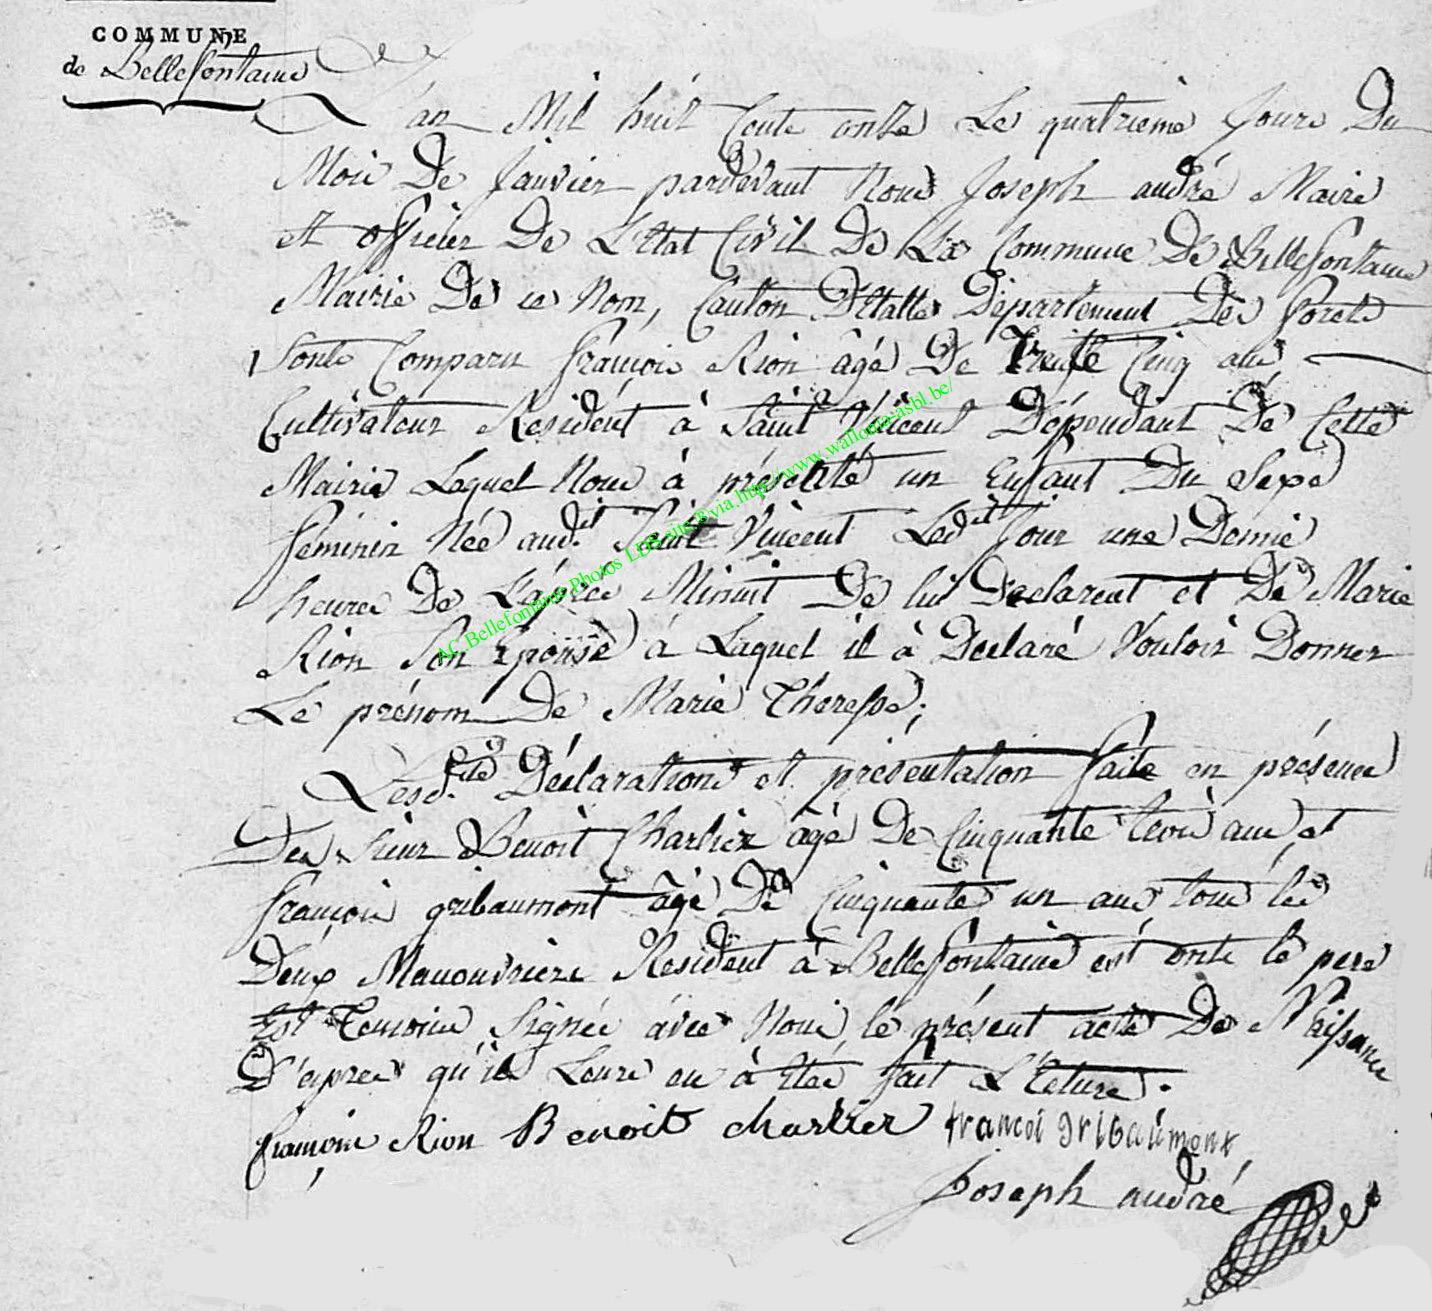 COMMUNE
de Bellefontaine
L'an Mil huit Cents onze Le quatrième Jours Du
Mois De Janvier pardevant Nous Joseph andré Maire
et officier De L'Etat Civil De La Commune De Bellefontaine
Mairie De ce Nom, Canton D'Etalle Département Des forets
sonts Comparu françois Rion âgé De Trente Cinq ans
Cultivateur Resident à Saint Vincent Dépendant De Cette
Mairie Laquel Nous à présenté un Enfant Du Sexe
feminin Née aud.it Saint Vincent Ledit Jour une Demie
heures De L'après Minuit De lui Declarent et De Marie
Rion Son Epousse à Laquel il à Declaré Vouloir Donner
Le prénom De Marie Theresse;
Lesd.ites Déclarations et présentation faite en présence
Des Sieur Benoit Charlier âgé De Cinquante trois ans, et
françois gribaumont âgé De Cinquante un ans, tous les
Deux Manouvriers Resident à Bellefontaine est onts le pere
Est Temoins Signée avec Nous, le présent acte De Naissance
D'apres qu'il Leurs en à Etée fait L'Ecture.
françois Rion Benoit charlier francoi gribaumont
Joseph andré
AC.Bellefontaine.Photos LDS site ®via.http://www.wallonia-asbl.be/